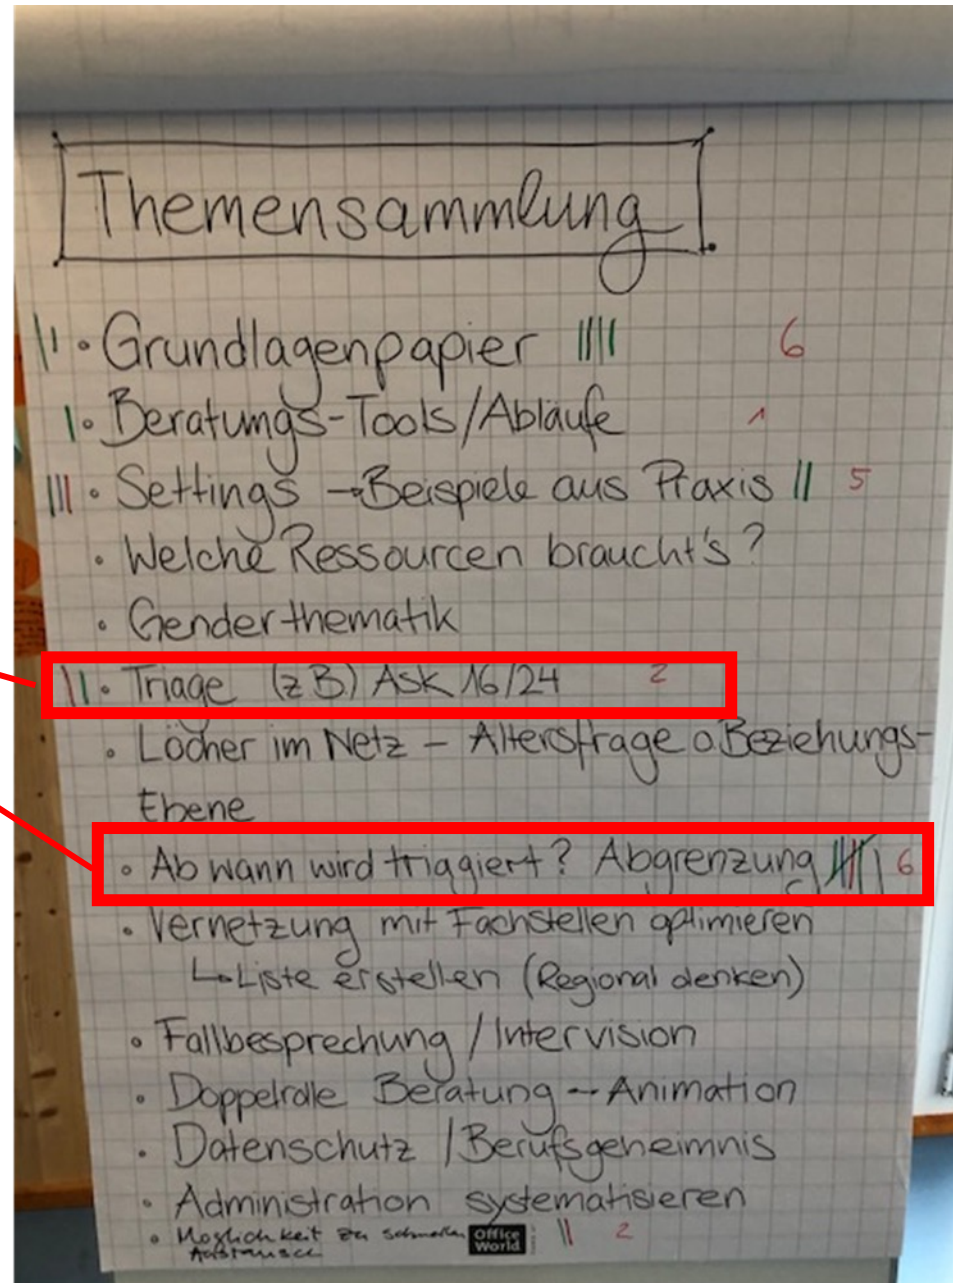 Themensammlung
• Grundlagenpapier 6
• Beratungs-Tools/Abläufe 1
• Settings → Beispiele aus Praxis 5
• Welche Ressourcen braucht's?
• Genderthematik
• Triage (z B.) Ask 16/24 2
• Löcher im Netz – Altersfrage o. Beziehungs-
Ebene
• Ab wann wird triggiert? Abgrenzung 6
• Vernetzung mit Fachstellen optimieren
↳ Liste erstellen (Regional denken)
• Fallbesprechung / Intervision
• Doppelrolle Beratung – Animation
• Datenschutz / Berufsgeheimnis
• Administration systematisieren
• Möglichkeit zu schnellem 2
Austausch
Office
World